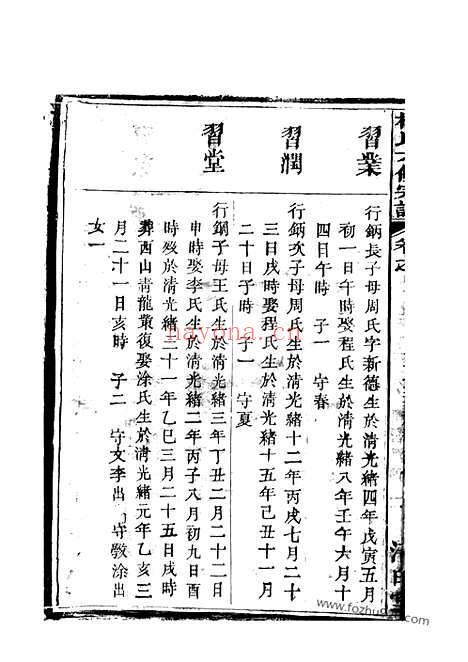 習業
行鈵長子母周氏字新德生於清光緒四年戊寅五月
初一日午時娶程氏生於清光緒八年壬午六月十
四日午時 子一 守春
習潤
行鈵次子母周氏生於清光緒十二年丙戌七月二十
三日戌時娶程氏生於清光緒十五年己丑十一月
二十日子時 子一 守夏
習堂
行鈵子母王氏生於清光緒三年丁丑二月二十二日
申時娶李氏生於清光緒二年丙子八月初九日酉
時歿於清光緒三十一年乙巳三月二十五日戌時
葬西山青龍嘴復娶涂氏生於清光緒元年乙亥三
月二十一日亥時 子二 守文李出 守敎涂出
女一
nayona.cn
www.fozhu920.com